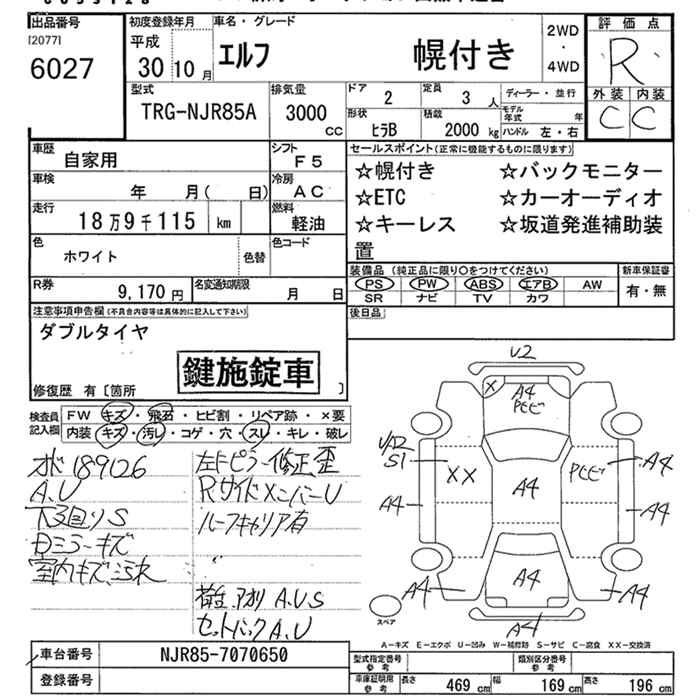 出品番号
[2077]
6027
初度登録年月
平成
30 10月
車名・グレード
エルフ 幌付き
2WD
・
4WD
評価点
R
外装 内装
C C
型式
TRG-NJR85A
排気量
3000
cc
ドア
2
定員
3 人
形状
ヒラB
積載
2000 kg
ディーラー・並行
モデル年式 年
ハンドル 左・右
車歴
自家用
シフト
F5
車検
年 月( 日)
冷房
AC
走行
18万9千115 km
燃料
軽油
色
ホワイト
色替
色コード
R券
9,170円
名変通知期限
月 日
セールスポイント(正常に機能するものに限ります)
☆幌付き ☆バックモニター
☆ETC ☆カーオーディオ
☆キーレス ☆坂道発進補助装
置
装備品(純正品に限り○をつけてください)
PS PW ABS エアB AW
SR ナビ TV カワ
新車保証書
有・無
後日品
注意事項申告欄(不具合内容等は具体的に記入して下さい)
ダブルタイヤ
鍵施錠車
修復歴 有〔箇所 〕
検査員記入欄
FW キズ・飛石・ヒビ割・リペア跡・×要
内装 キズ・汚レ・コゲ・穴・スレ・キレ・破レ
オド189126
A.U
下廻りS
Dミラーキズ
室内キズ、汚れ
左Fピラー修正歪
RサイドメンバーU
ルーフキャリア有
アオリ A.U.S
セットバックA.U
U2
X
A4
PCヒビ
U/A2
S1
XX
A4
PCヒビ
A4
A4
A4
A4
A4
A4
A4
スペア
A-キズ E-エクボ U-凹み W-補修跡 S-サビ C-腐食 XX-交換済
車台番号
NJR85-7070650
登録番号
型式指定番号
参考
類別区分番号
参考
車庫証明用
参考
長さ 469 cm 幅 169 cm 高さ 196 cm